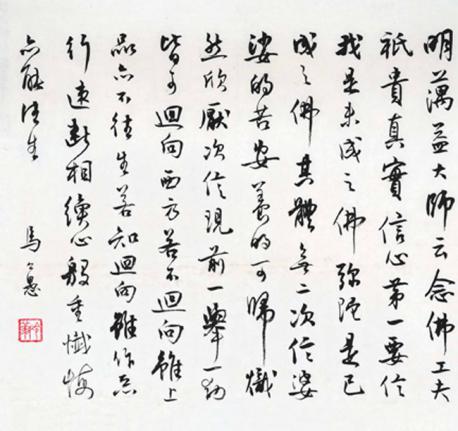 明蕅益大師云念佛工夫
祇貴真實信心第一要信
我是未成之佛彌陀是已
成之佛其體無二次信娑
婆的苦安養的可歸熾
然欣厭次信現前一舉一動
皆可迴向西方若不迴向雖上
品亦不往生若知迴向雖作惡
行速斷相續心殷重懺悔
亦能往生
馬公愚